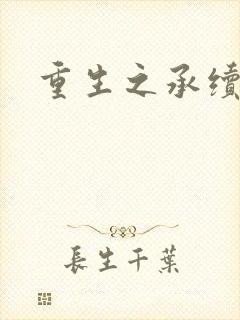 重生之承續
長生千葉